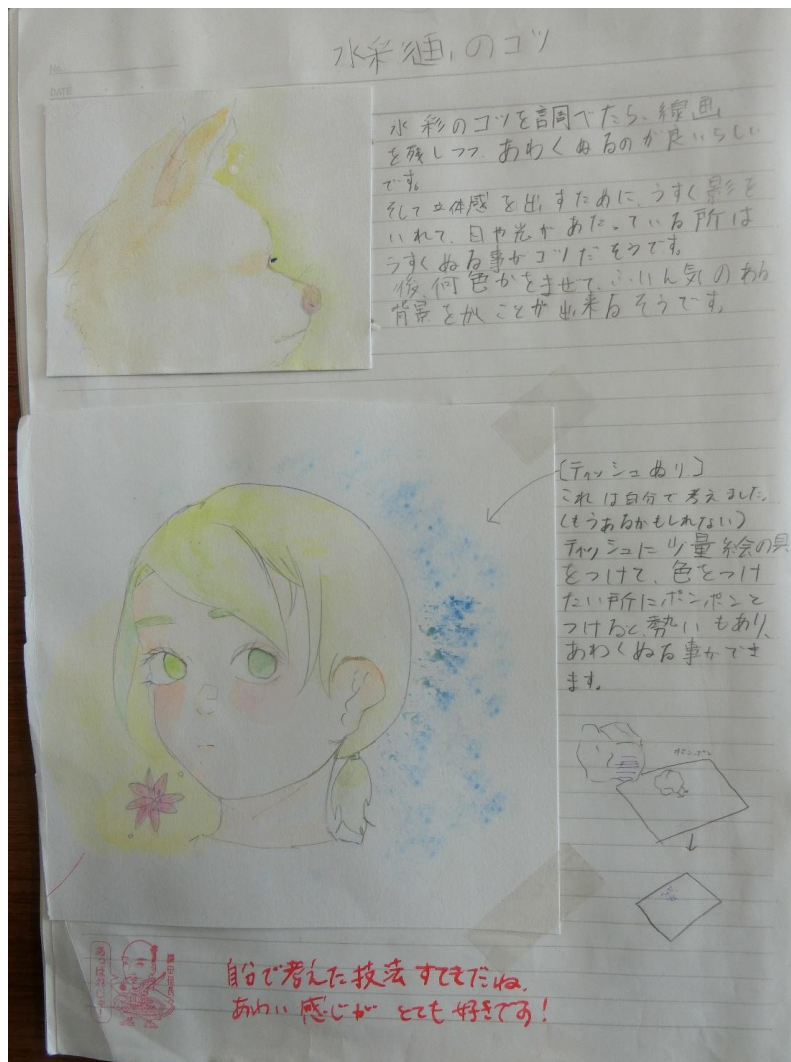 水彩画のコツ
No.
DATE
水彩のコツを調べたら、線画
を残しつつ、あわくぬるのが良いらしい
です。
そして立体感を出すために、うすく影を
いれて、日や光があたっている所は
うすくぬる事がコツだそうです。
後、何色かをまぜて、ふいん気のある
背景をかくことが出来るそうです。
[ティッシュぬり]
これは自分で考えました。
(もうあるかもしれない)
ティッシュに少量絵の具
をつけて、色をつけ
たい所にポンポンと
つけると、勢いもあり、
あわくぬる事ができ
ます。
ポンポン
織田信長
あっぱれじゃー!
自分で考えた技法 すてきだね。
あわい感じが とても好きです!